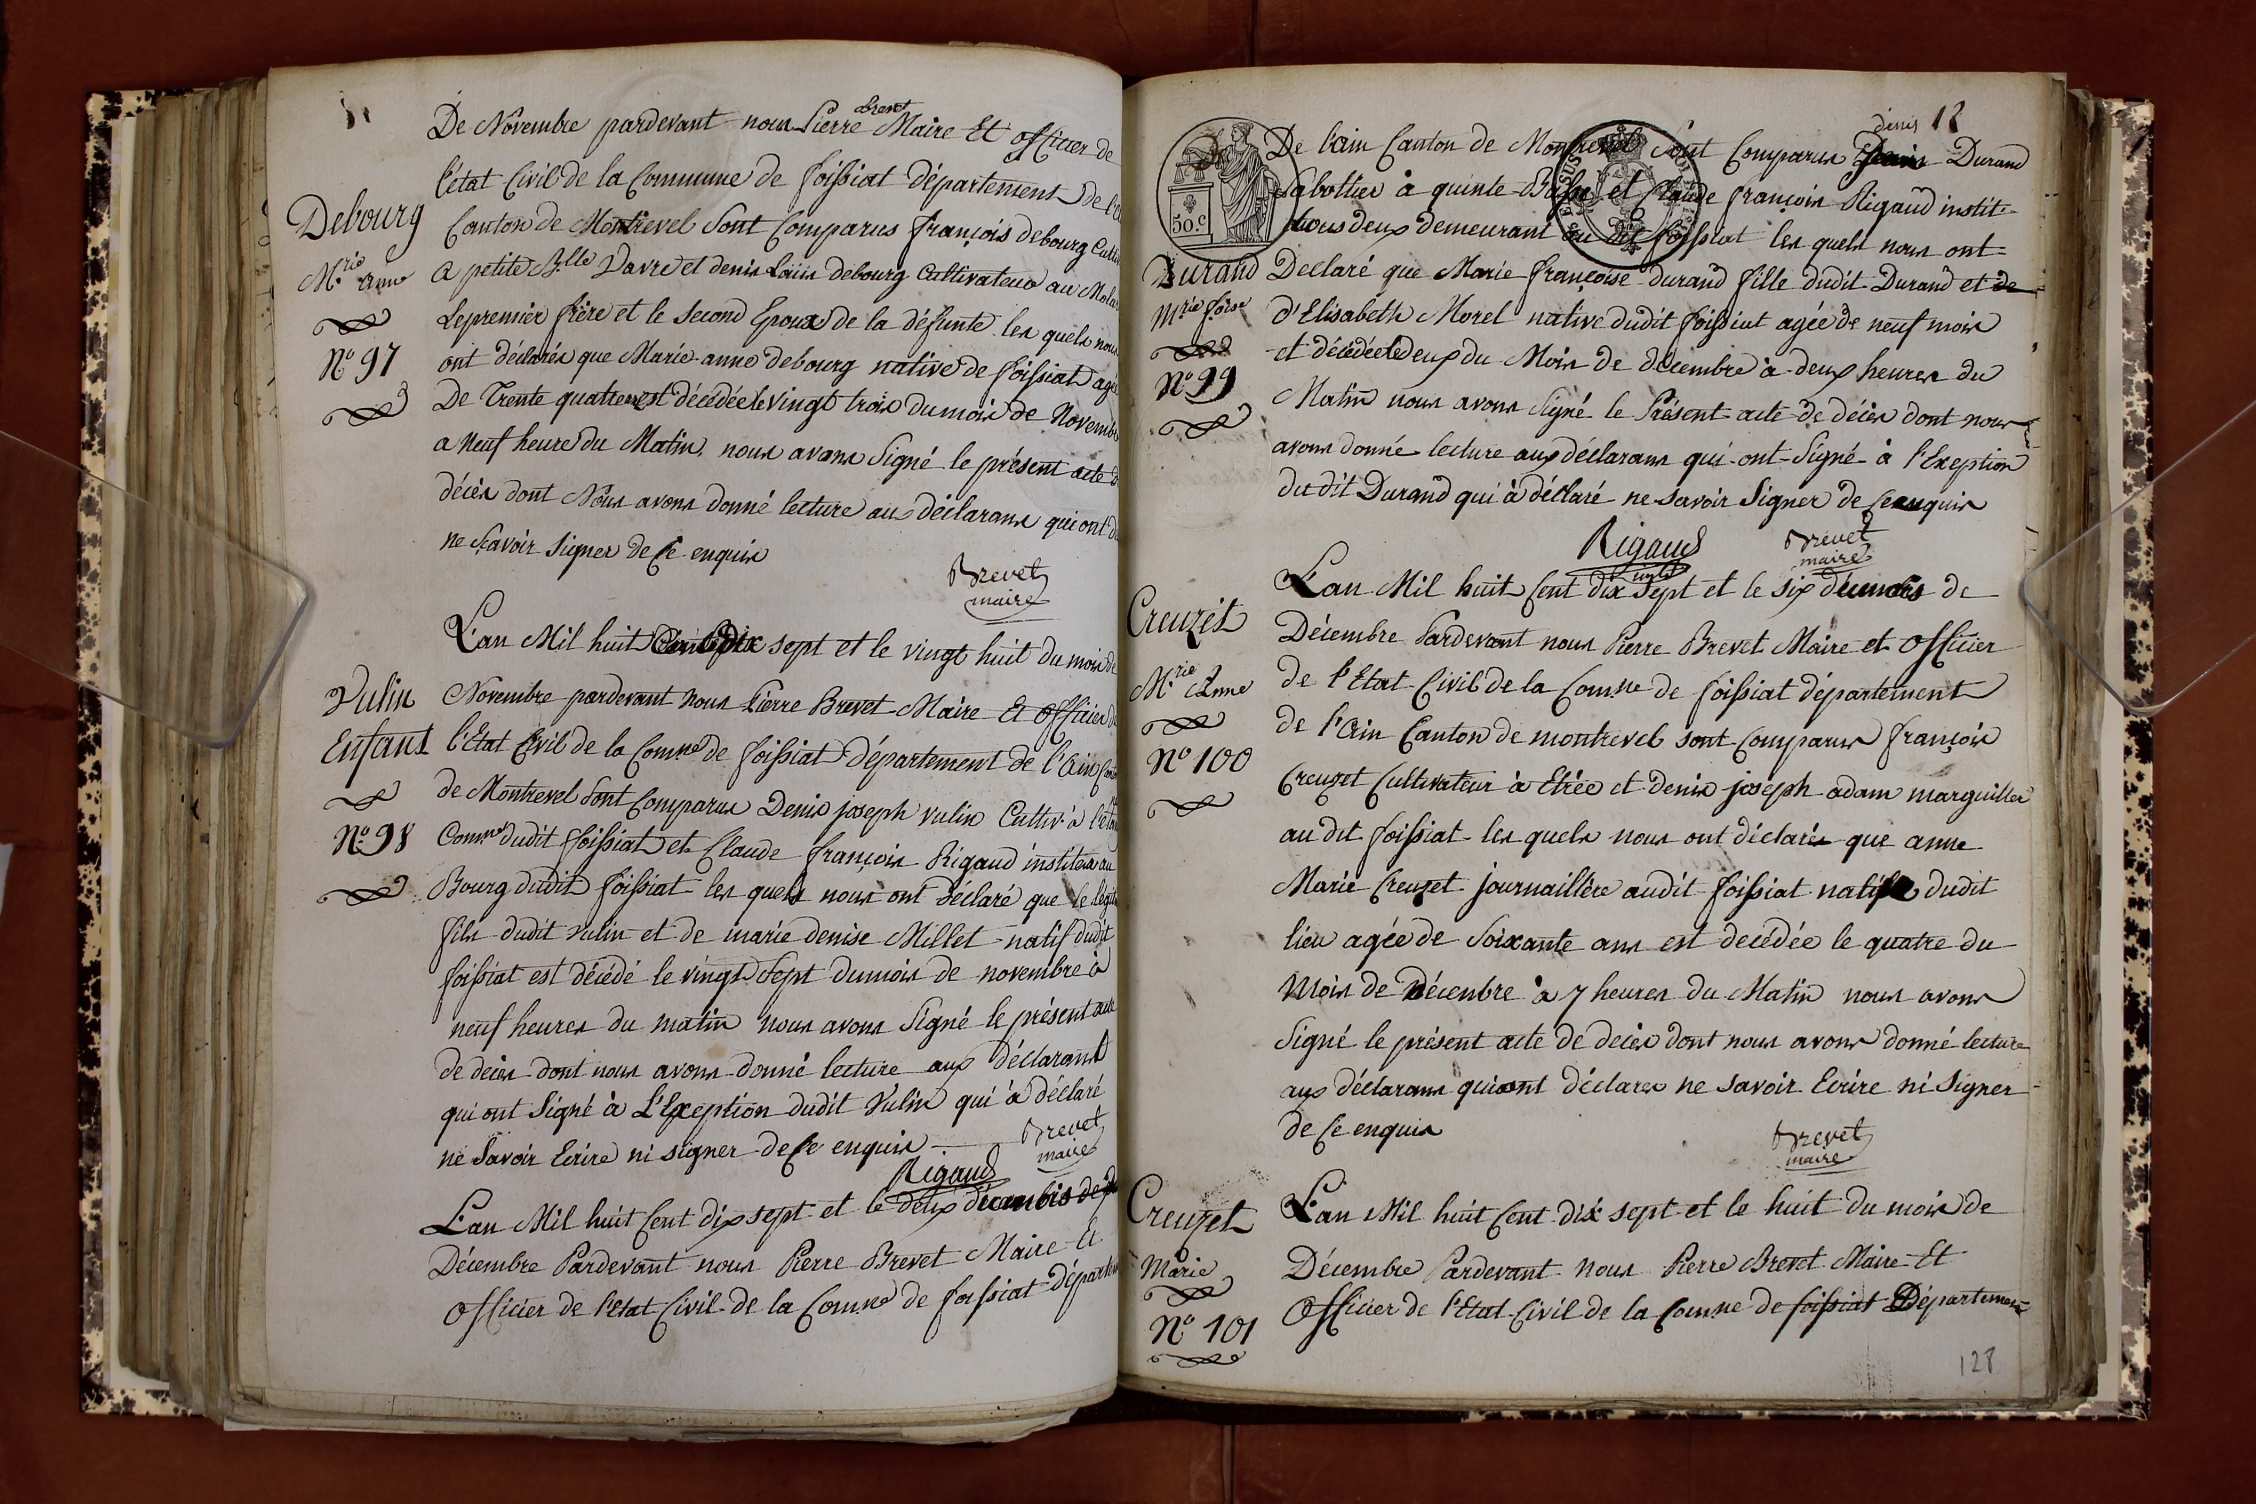 De Novembre pardevant nous Pierre Brevet Maire Et officier de
l'etat Civil de la Commune de foissiat département de l'
Debourg
Canton de Montrevel Sont Comparus françois debourg Culti
M.rie anne
a petite Davre et denis Louis debourg Cultivateur au Mola
Le premier frère et le second Epoux de la défunte. les quels nous
N.o 97
ont déclarés que Marie anne debourg native de foissiat agé
De Trente quatre est décédée le vingt trois du mois de Novemb
a Neuf heure du Matin, nous avons Signé le présent acte d
décès dont Nous avons donné lecture aux déclarans qui ont d
ne sçavoir signer de Ce enquis
Brevet
maire
L'an Mil huit Cent dix sept et le vingt huit du mois de
Vulin
Novembre pardevant nous Pierre Brevet Maire Et officier d
Enfant
l'Etat Civil de la Com.ne de foissiat département de l'ain Can
de Montrevel Sont Comparus Denis joseph vulin Cultiv. à l'
N.o 98
Com.ne dudit foissiat et Claude françois Rigaud instituteur au
Bourg dudit foissiat les quels nous ont Déclaré que le légi
fils dudit Vulin et de marie denise Millet natif dudit
foissiat est décédé le vingt Sept dumois de novembre à
neuf heures du matin nous avons Signé le présent acte
de décès dont nous avons donné lecture aux Déclarans
qui ont Signé à L'Exeption dudit Vulin qui à déclaré
ne Savoir Ecrire ni signer de Ce enquis
Brevet
maire
Rigaud
L'an Mil huit Cent dix sept et le deux du mois de
Décembre Pardevant nous Pierre Brevet Maire Et
officier de l'Etat Civil de la Com.ne de foissiat départem
denis 18
De l'ain Canton de Montrevel Sont Comparus Durand
Sabottier à quinte Basse et Claude françois Rigaud instit
50.c
tous deux demeurant au dit foissiat les quels nous ont
Durand
Declaré que Marie françoise durand fille dudit Durand et de
M.rie f.oise
d'Elisabeth Morel native dudit foissiat agée de neuf mois
et décédée le deux du Mois de décembre à deux heures du
N.o 99
Matin nous avons Signé le Présent acte de décès dont nous
avons donné lecture aux déclarans qui ont Signé à l'Exeption
du dit Durand qui à déclaré ne savoir Signer de Ce enquis
Rigaud
Brevet
maire
L'an Mil huit Cent dix sept et le six du mois de
Creuzet
Décembre Pardevant nous Pierre Brevet Maire et officier
M.rie Anne
de l'Etat Civil de la Com.ne de foissiat département
N.o 100
de l'ain Canton de montrevel sont Comparus françois
Creuzet Cultivateur à Etrée et denis joseph adam marguiller
au dit foissiat les quels nous ont déclarés que anne
Marie Creuzet journaillère audit foissiat native dudit
lieu agée de Soixante ans est decédée le quatre du
Mois de Décembre à 7 heures du Matin nous avons
Signé le présent acte de decès dont nous avons donné lecture
aux déclarans qui ont déclarés ne savoir Ecrire ni signer
de Ce enquis
Brevet
maire
Creuzet
L'an Mil huit Cent dix sept et le huit du mois de
Marie
Décembre Pardevant nous Pierre Brevet Maire Et
N.o 101
Officier de l'Etat Civil de la Com.ne de foissiat Département
128